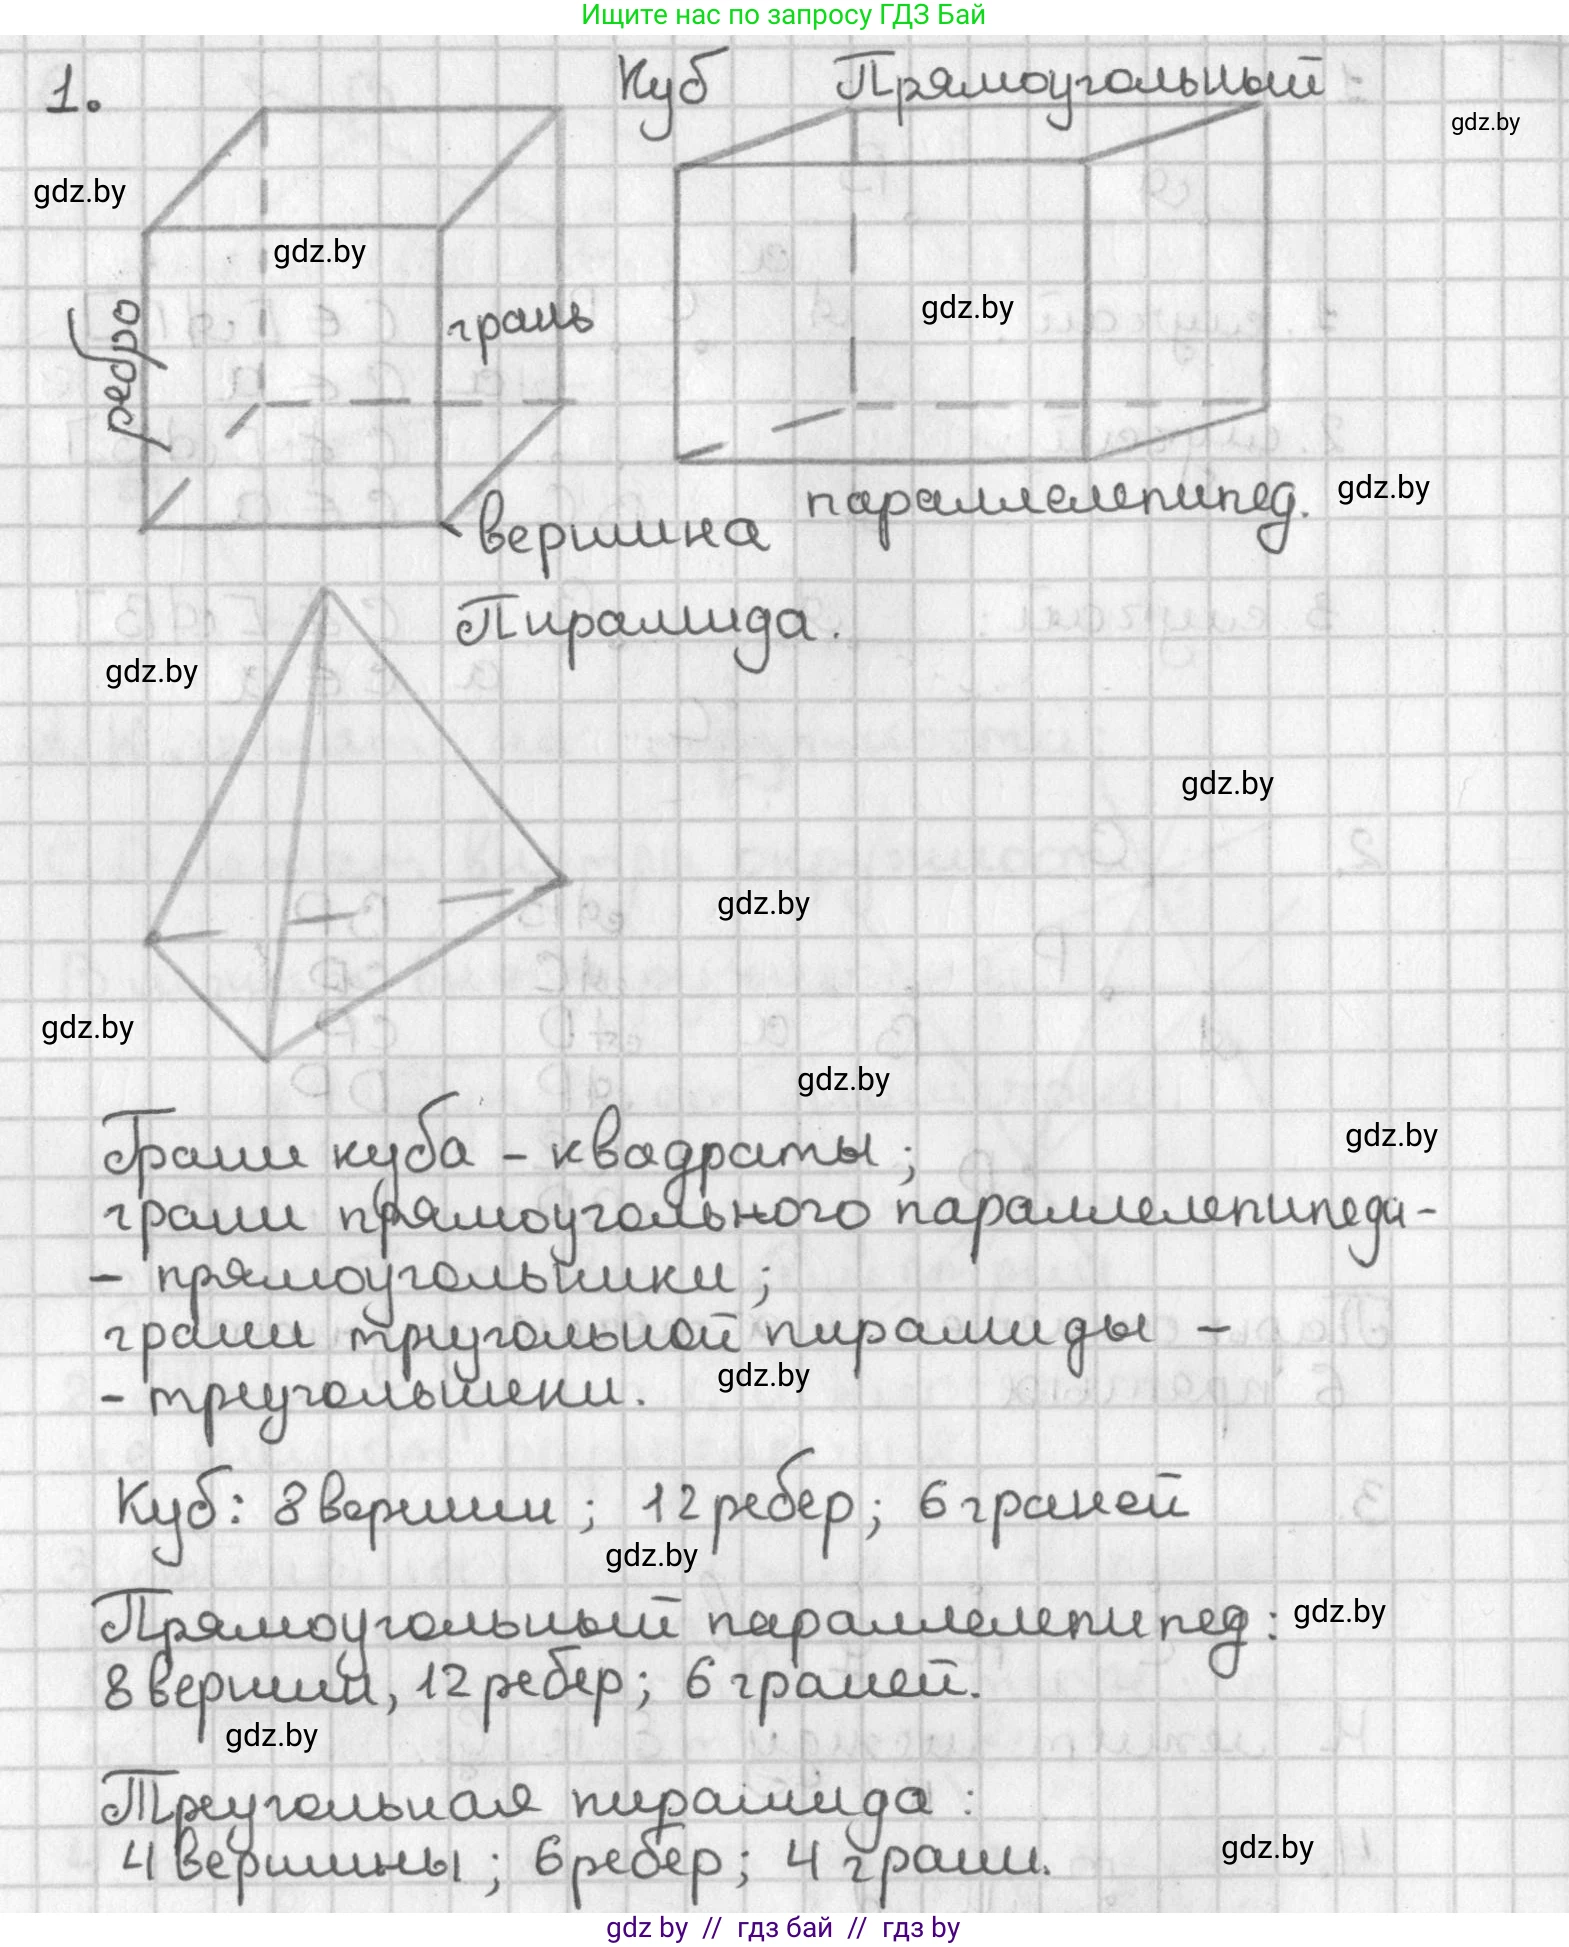 Ищите нас по запросу ГДЗ Бай
1.
Куб
Прямоугольный
gdz.by
gdz.by
gdz.by
ребро
грань
gdz.by
вершина
параллелепипед.
gdz.by
Пирамида.
gdz.by
gdz.by
gdz.by
gdz.by
gdz.by
Грани куба - квадраты;
gdz.by
грани прямоугольного параллелепипеда-
- прямоугольники;
грани треугольной пирамиды -
- треугольники.
gdz.by
Куб: 8 вершин; 12 ребер; 6 граней
gdz.by
Прямоугольный параллелепипед:
gdz.by
8 вершин, 12 ребер; 6 граней.
gdz.by
Треугольная пирамида:
4 вершины; 6 ребер; 4 грани.
gdz.by
gdz by // гдз бай // гдз by